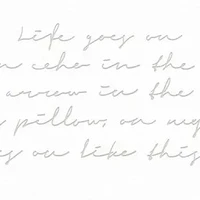 Life goes on
echo in the
arrow in the
pillow, on my
on like this